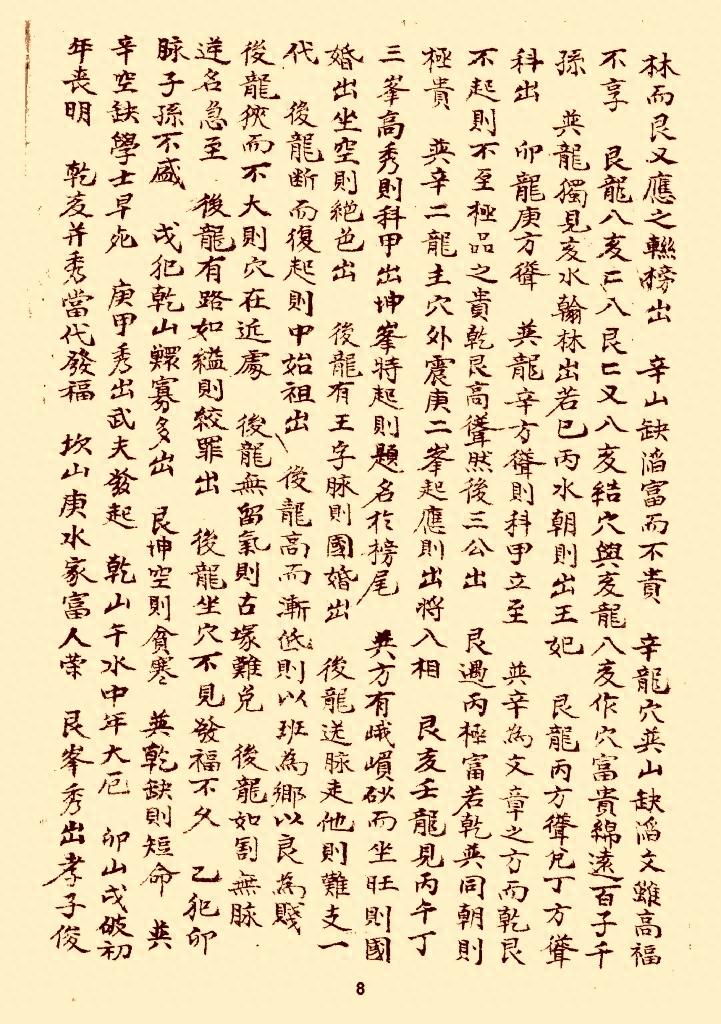 林而艮又應之聯榜出　辛山缺滔富而不貴　辛龍穴巽山缺滔文雖高福
不享　艮龍八亥亡八艮亡又八亥結穴與亥龍八亥作穴富貴綿遠百子千
孫　巽龍獨見亥水翰林出若巳丙水朝則出王妃　艮龍丙方聳兄丁方聳
科出　卯龍庚方聳　巽龍辛方聳則科甲立至　巽辛為文章之方而乾艮
不起則不至極品之貴乾艮高聳然後三公出　艮遇丙極富若乾巽同朝則
極貴　巽辛二龍主穴外震庚二峯起應則出將入相　艮亥壬龍見丙午丁
三峯高秀則科甲出坤峯特起則題名於榜尾　巽方有峨嵋砂而坐旺則國
婚出坐空則絕色出　後龍有王字脉則國婚出　後龍送脉走他則難支一
代　後龍断而復起則中始祖出　後龍高而漸低則以班為鄉以良為賤
後龍狹而不大則穴在近處　後龍無留氣則古塚難免　後龍如割無脉
逆名急至　後龍有路如縊則絞罪出　後龍坐穴不見發福不久　乙犯卯
脉子孫不盛　戌犯乾山鰥寡多出　艮坤空則貧寒　巽乾缺則短命　巽
辛空缺學士早死　庚甲秀出武夫發起　乾山午水中年大厄　卯山戌破初
年喪明　乾亥并秀當代發福　坎山庚水家富人荣　艮峯秀出孝子俊
8